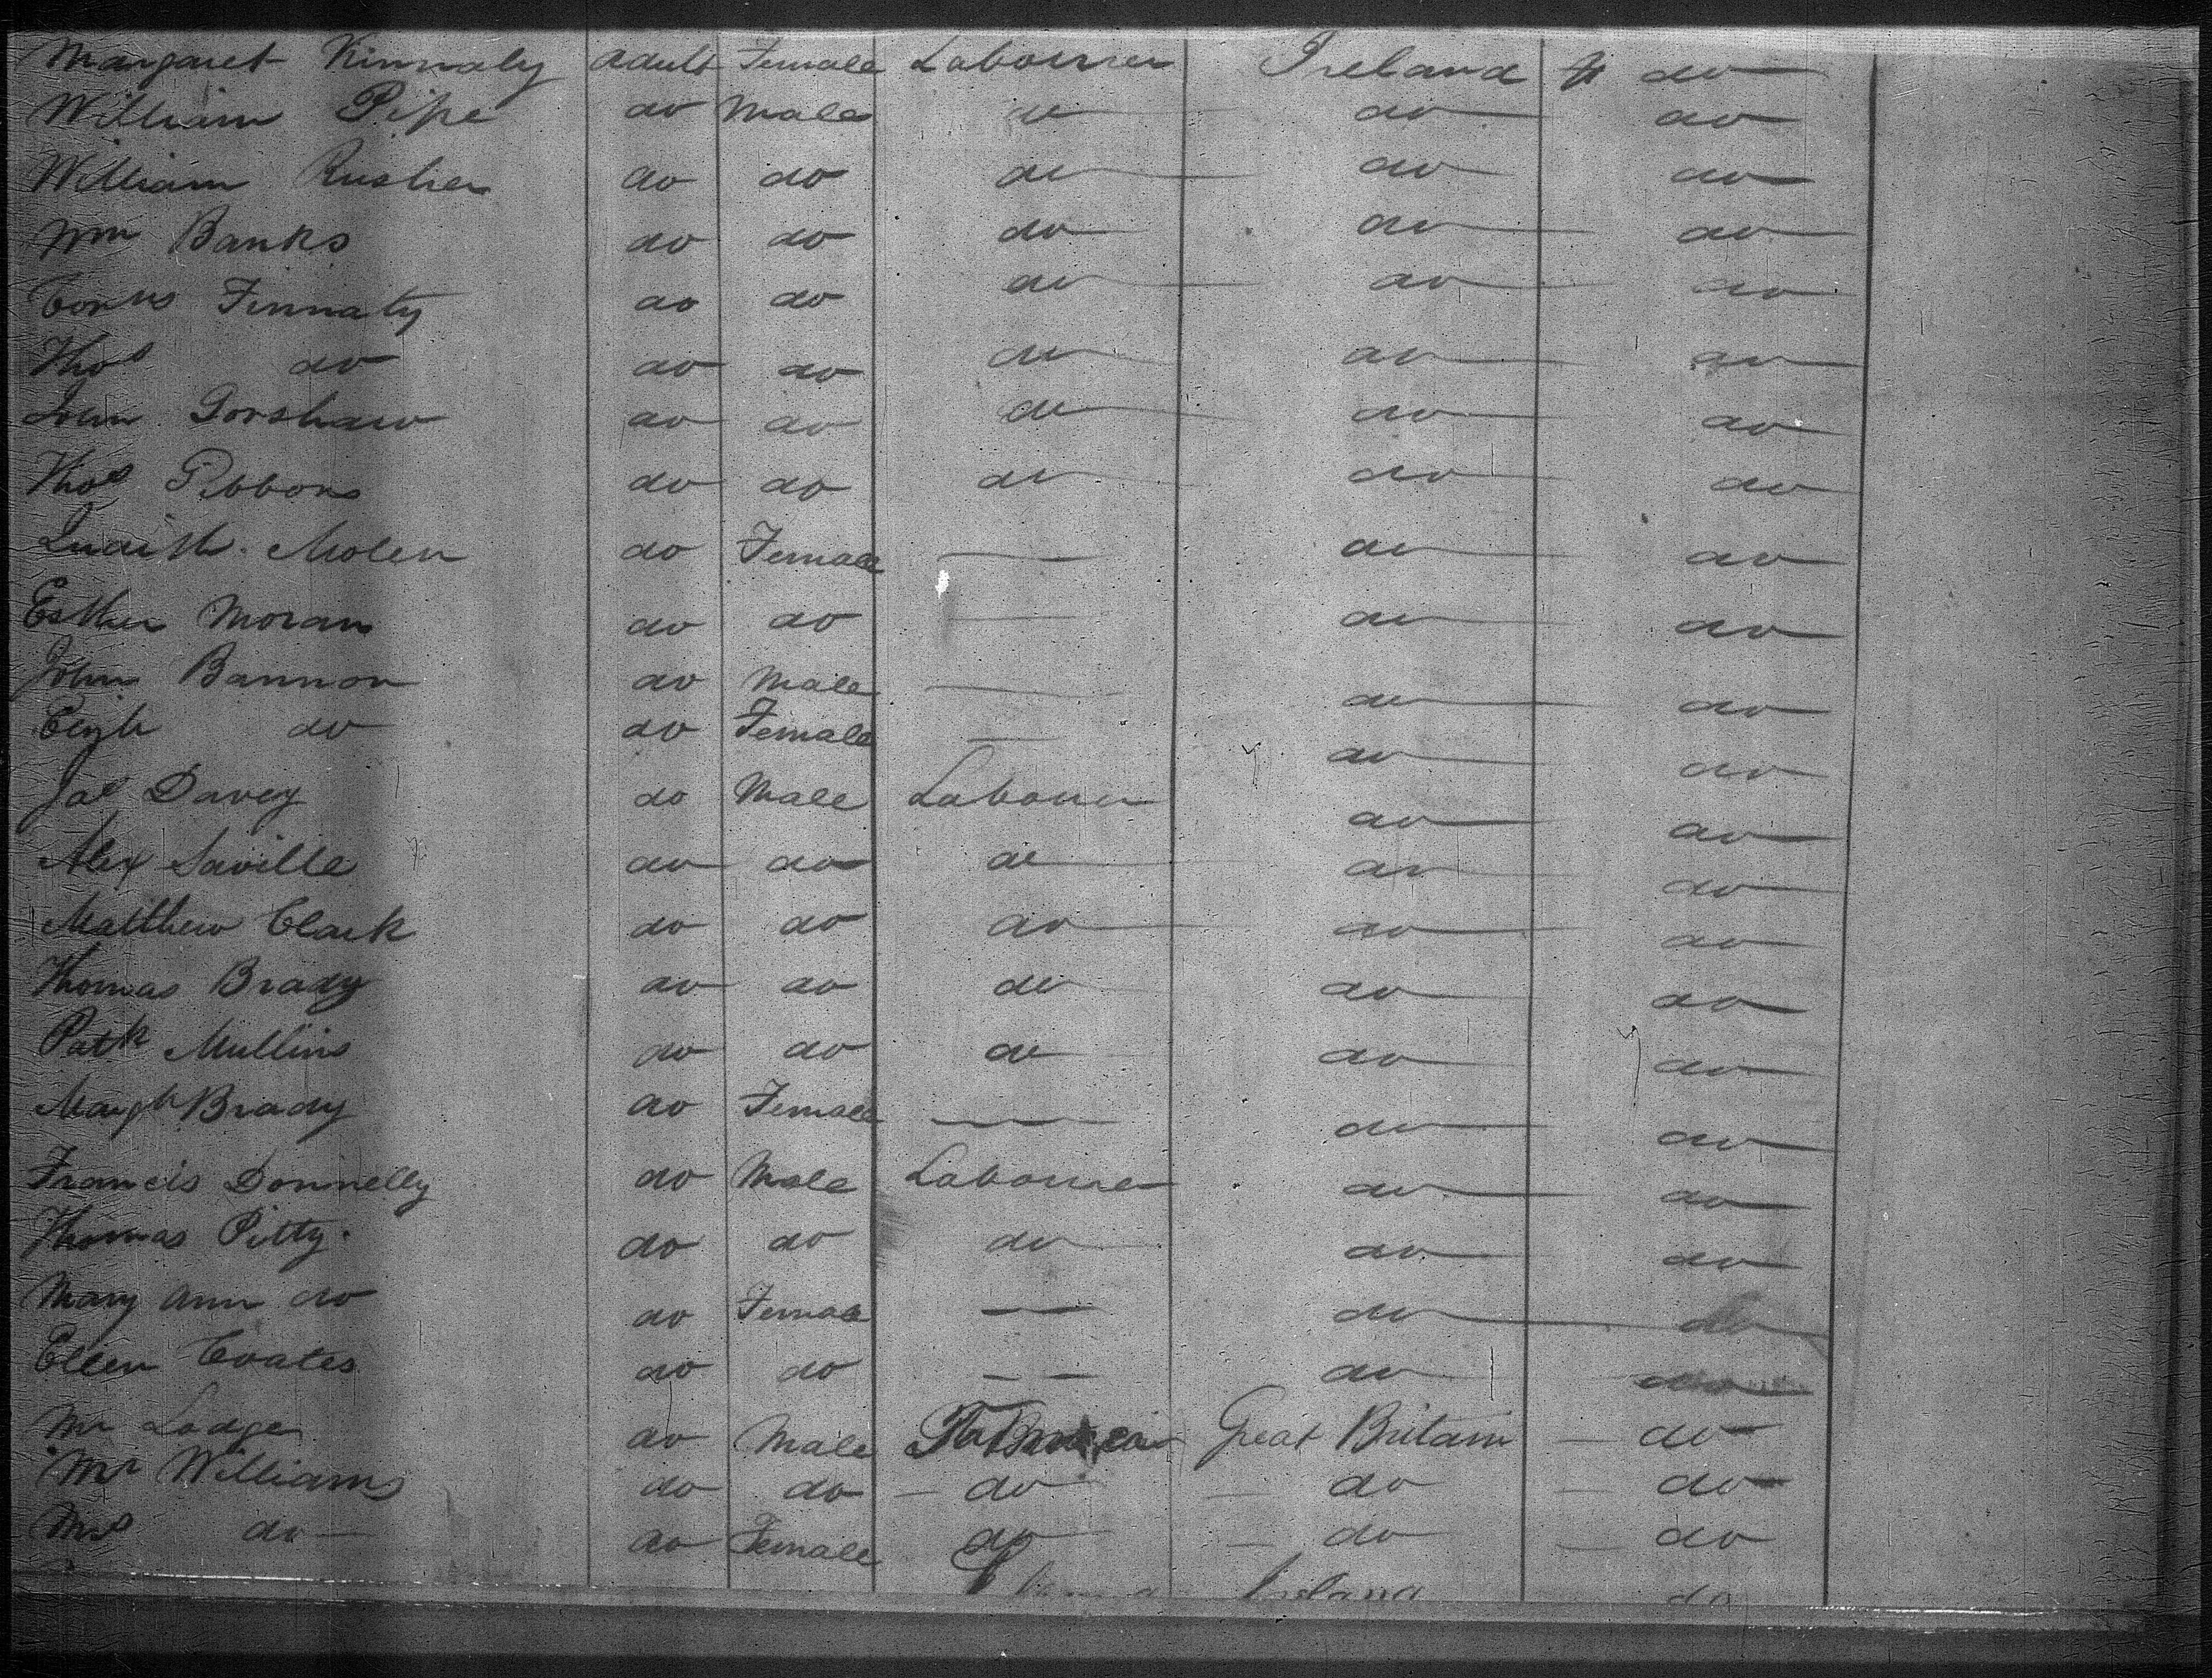 Margaret Kinnaly adult Female Labourer Ireland do
William Pipe do Male do do do
William Rusher do do do do do
Wm Banks do do do do do
Finnaty do do do do do
Thos do do do do do do
Gorshaw do do do do do
Thos Gibbons do do do do do
Molen do Female — do do
Esther Moran do do — do do
John Bannon do Male — do do
do do Female — do do
Jas Davey do Male Labourer do do
Alex Saville do do do do do
Matthew Clark do do do do do
Thomas Brady do do do do do
Patk Mullins do do do do do
Margt Brady do Female — do do
Francis Donnelly do Male Labourer do do
Thomas Pitty do do do do do
Mary Ann do do Female — do do
Ellen Coates do do — do do
Mr Lodge do Male Great Britain — do
Mr Williams do do — do — do — do
Mrs do do Female do — do — do
Ireland do